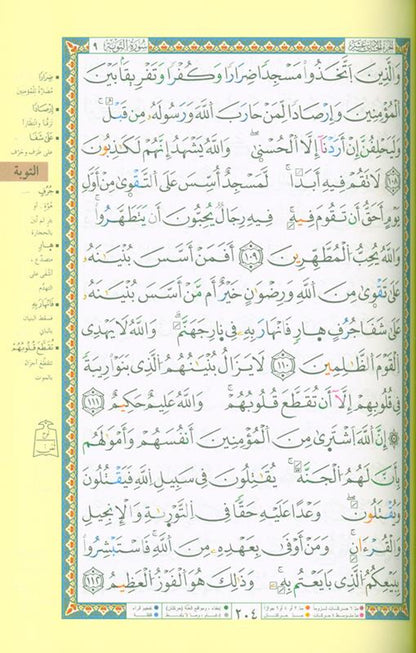 جزء الحادي عشر
سورة التوبة ٩
وَالَّذِينَ اتَّخَذُوا مَسْجِدًا ضِرَارًا وَكُفْرًا وَتَفْرِيقًا بَيْنَ
الْمُؤْمِنِينَ وَإِرْصَادًا لِمَنْ حَارَبَ اللَّهَ وَرَسُولَهُ مِن قَبْلُ
وَلَيَحْلِفُنَّ إِنْ أَرَدْنَا إِلَّا الْحُسْنَى وَاللَّهُ يَشْهَدُ إِنَّهُمْ لَكَاذِبُونَ
١٠٨ لَا تَقُمْ فِيهِ أَبَدًا لَمَسْجِدٌ أُسِّسَ عَلَى التَّقْوَى مِنْ أَوَّلِ
يَوْمٍ أَحَقُّ أَن تَقُومَ فِيهِ فِيهِ رِجَالٌ يُحِبُّونَ أَن يَتَطَهَّرُوا
وَاللَّهُ يُحِبُّ الْمُطَّهِّرِينَ ١٠٩ أَفَمَنْ أَسَّسَ بُنْيَانَهُ
عَلَى تَقْوَى مِنَ اللَّهِ وَرِضْوَانٍ خَيْرٌ أَم مَّنْ أَسَّسَ بُنْيَانَهُ
عَلَى شَفَا جُرُفٍ هَارٍ فَانْهَارَ بِهِ فِي نَارِ جَهَنَّمَ وَاللَّهُ لَا يَهْدِي
الْقَوْمَ الظَّالِمِينَ ١١٠ لَا يَزَالُ بُنْيَانُهُمُ الَّذِي بَنَوْا رِيبَةً
فِي قُلُوبِهِمْ إِلَّا أَن تُقَطَّعَ قُلُوبُهُمْ وَاللَّهُ عَلِيمٌ حَكِيمٌ ١١١
۞ إِنَّ اللَّهَ اشْتَرَى مِنَ الْمُؤْمِنِينَ أَنفُسَهُمْ وَأَمْوَالَهُم
بِأَنَّ لَهُمُ الْجَنَّةَ يُقَاتِلُونَ فِي سَبِيلِ اللَّهِ فَيَقْتُلُونَ
وَيُقْتَلُونَ وَعْدًا عَلَيْهِ حَقًّا فِي التَّوْرَاةِ وَالْإِنجِيلِ
وَالْقُرْآنِ وَمَنْ أَوْفَى بِعَهْدِهِ مِنَ اللَّهِ فَاسْتَبْشِرُوا
بِبَيْعِكُمُ الَّذِي بَايَعْتُم بِهِ وَذَلِكَ هُوَ الْفَوْزُ الْعَظِيمُ ١١٢
٢٠٤
ضِرَارًا
مضارة للمؤمنين
إِرْصَادًا
ترقبا وانتظارا
عَلَى شَفَا
على طرف وحرف
التوبة
جُرُفٍ
بالحجارة
هَارٍ
متصدع،
التهدم
فَانْهَارَ بِهِ
فسقط البنيان
بالباني
تُقَطَّعَ قُلُوبُهُمْ
بالموت